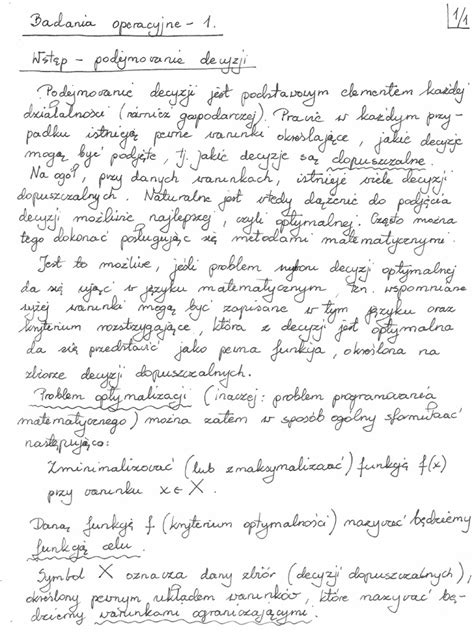 Badania operacyjne - 1.
1/1
Wstęp - podejmowanie decyzji
Podejmowanie decyzji jest podstawowym elementem każdej
działalności (również gospodarczej). Prawie w każdym przy-
padku istnieją pewne warunki określające, jakie decyzje
mogą być podjęte, tj. jakie decyzje są dopuszczalne.
Na ogół, przy danych warunkach, istnieje wiele decyzji
dopuszczalnych. Naturalne jest wtedy dążenie do podjęcia
decyzji możliwie najlepszej, czyli optymalnej. Często można
tego dokonać posługując się metodami matematycznymi.
Jest to możliwe, jeśli problem wyboru decyzji optymalnej
da się ująć w języku matematycznym tzn. wspomniane
wyżej warunki mogą być zapisane w tym języku oraz
kryterium rozstrzygające, która z decyzji jest optymalna
da się przedstawić jako pewna funkcja, określona na
zbiorze decyzji dopuszczalnych.
Problem optymalizacji (inaczej: problem programowania
matematycznego) można zatem w sposób ogólny sformułować
następująco:
Zminimalizować (lub zmaksymalizować) funkcję f(x)
przy warunku x ∈ X.
Daną funkcję f (kryterium optymalności) nazywać będziemy
funkcją celu.
Symbol X oznacza dany zbiór (decyzji dopuszczalnych),
określony pewnym układem warunków, które nazywać bę-
dziemy warunkami ograniczającymi.